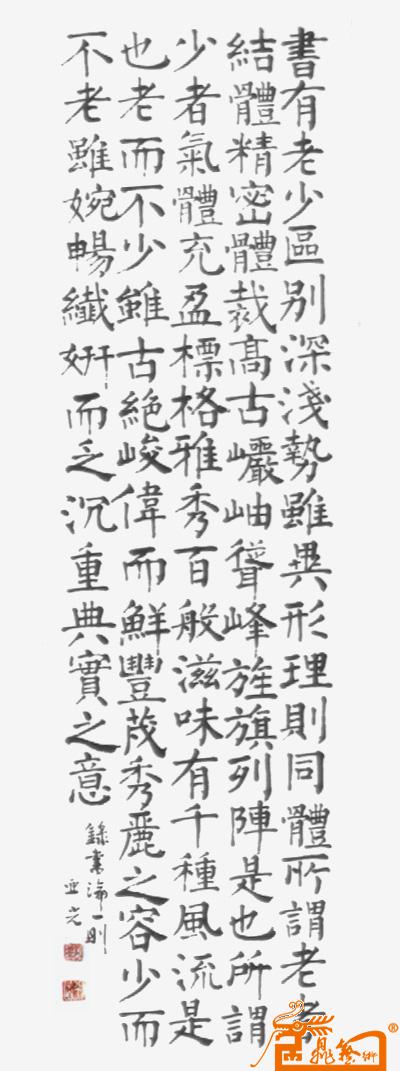 書有老少區別深淺勢雖異形理則同體所謂老者
結體精密體裁高古巖岫聳峰旌旗列陣是也所謂
少者氣體充盈標格雅秀百般滋味有千種風流是
也老而不少雖古絕峻偉而鮮豐茂秀麗之容少而
不老雖婉暢纖妍而乏沉重典實之意
錄書論一則
亞光